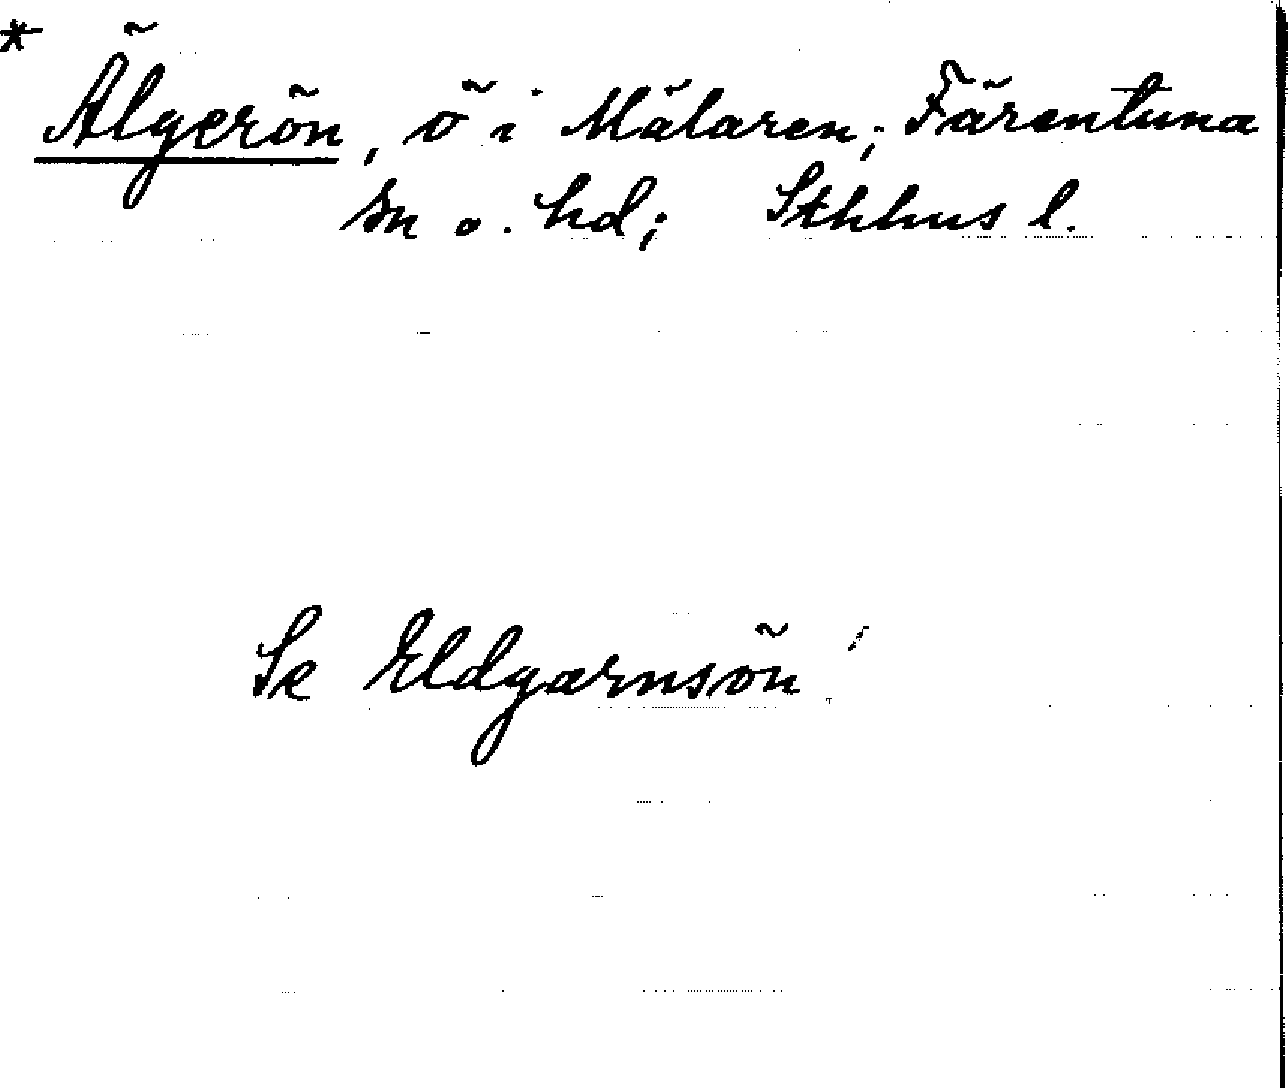 * Älgerön, ö i Mälaren; Färentuna
sn o. hd; Sthlms l.
Se Eldgarnsön!